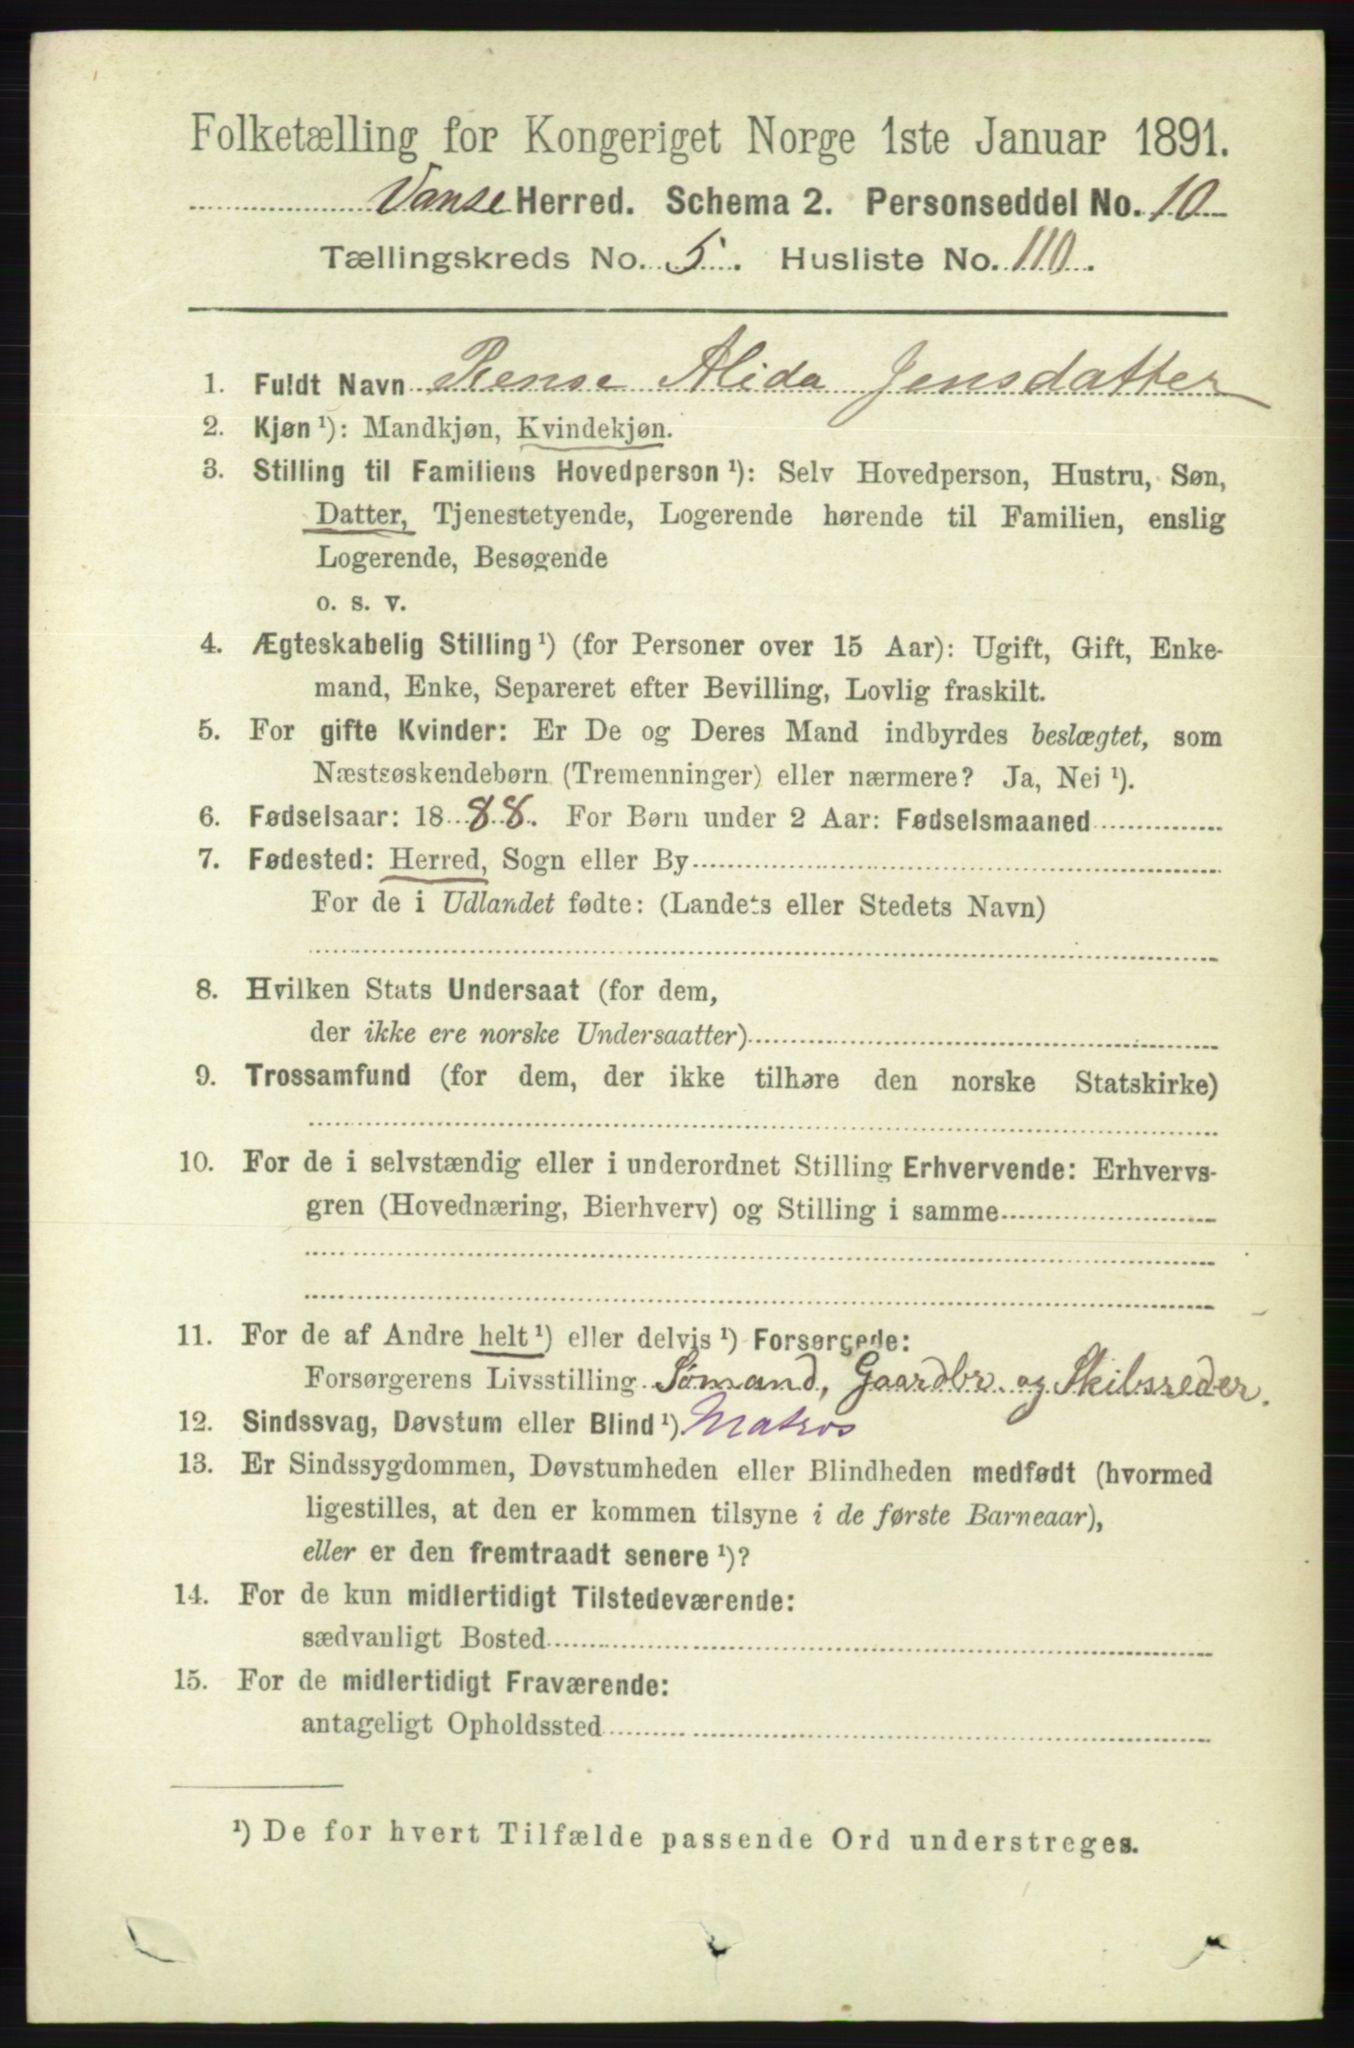 Folketælling for Kongeriget Norge 1ste Januar 1891.
Vanse Herred. Schema 2. Personseddel No. 10
Tællingskreds No. 5. Husliste No. 110.
1. Fuldt Navn Rense Alida Jensdatter
2. Kjøn ¹): Mandkjøn, Kvindekjøn.
3. Stilling til Familiens Hovedperson ¹): Selv Hovedperson, Hustru, Søn,
Datter, Tjenestetyende, Logerende hørende til Familien, enslig
Logerende, Besøgende
o. s. v.
4. Ægteskabelig Stilling ¹) (for Personer over 15 Aar): Ugift, Gift, Enke-
mand, Enke, Separeret efter Bevilling, Lovlig fraskilt.
5. For gifte Kvinder: Er De og Deres Mand indbyrdes beslægtet, som
Næstsøskendebørn (Tremenninger) eller nærmere? Ja, Nei ¹).
6. Fødselsaar: 1888. For Børn under 2 Aar: Fødselsmaaned
7. Fødested: Herred, Sogn eller By
For de i Udlandet fødte: (Landets eller Stedets Navn)
8. Hvilken Stats Undersaat (for dem,
der ikke ere norske Undersaatter)
9. Trossamfund (for dem, der ikke tilhøre den norske Statskirke)
10. For de i selvstændig eller i underordnet Stilling Erhvervende: Erhvervs-
gren (Hovednæring, Bierhverv) og Stilling i samme
11. For de af Andre helt ¹) eller delvis ¹) Forsørgede:
Forsørgerens Livsstilling Sømand, Gaardbr. og Skibsreder.
12. Sindssvag, Døvstum eller Blind ¹) Matros
13. Er Sindssygdommen, Døvstumheden eller Blindheden medfødt (hvormed
ligestilles, at den er kommen tilsyne i de første Barneaar),
eller er den fremtraadt senere ¹)?
14. For de kun midlertidigt Tilstedeværende:
sædvanligt Bosted
15. For de midlertidigt Fraværende:
antageligt Opholdssted
¹) De for hvert Tilfælde passende Ord understreges.